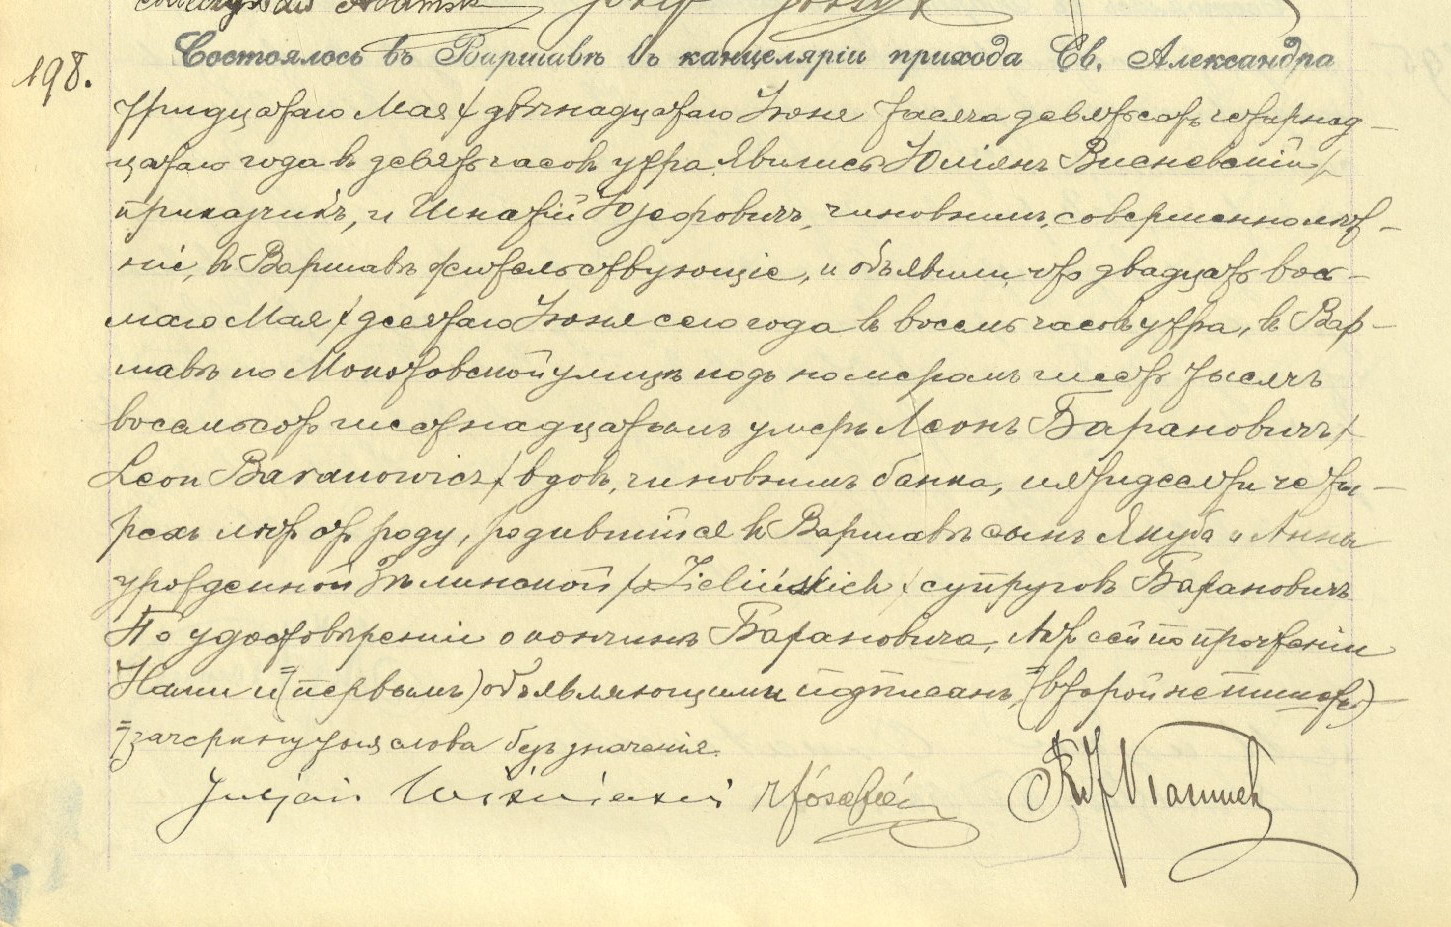 198.
Состоялось въ Варшавѣ въ канцеляріи прихода Св. Александра
тридцатаго Мая / двѣнадцатаго Іюня тысяча девятьсотъ четырнад-
цатаго года въ девять часовъ утра. Явились Юліянъ Висневскій,
приказчикъ, и Игнатій Юзефовичъ, чиновникъ, совершеннолѣт-
ніе, въ Варшавѣ жительствующіе, и объявили, что двадцать вось-
маго Мая / десятаго Іюня сего года въ восемь часовъ утра, въ Вар-
шавѣ по Мокотовской улицѣ подъ номеромъ шесть тысячъ
восемьсотъ шестнадцатымъ умеръ Леонъ Барановичъ /
Leon Baranowicz / вдовъ, чиновникъ банка, пятидесяти четы-
рехъ лѣтъ отъ роду, родившійся въ Варшавѣ сынъ Якуба и Анны
урожденной Зѣлинской / z Zielińskich / супруговъ Барановичъ
По удостовѣреніи о кончинѣ Барановича, Актъ сей по прочтеніи
Нами и =(первымъ) объявляющими подписанъ, =(второй не пишетъ)
=/зачеркнутыя слова безъ значенія.
Juljan Wiśniewski